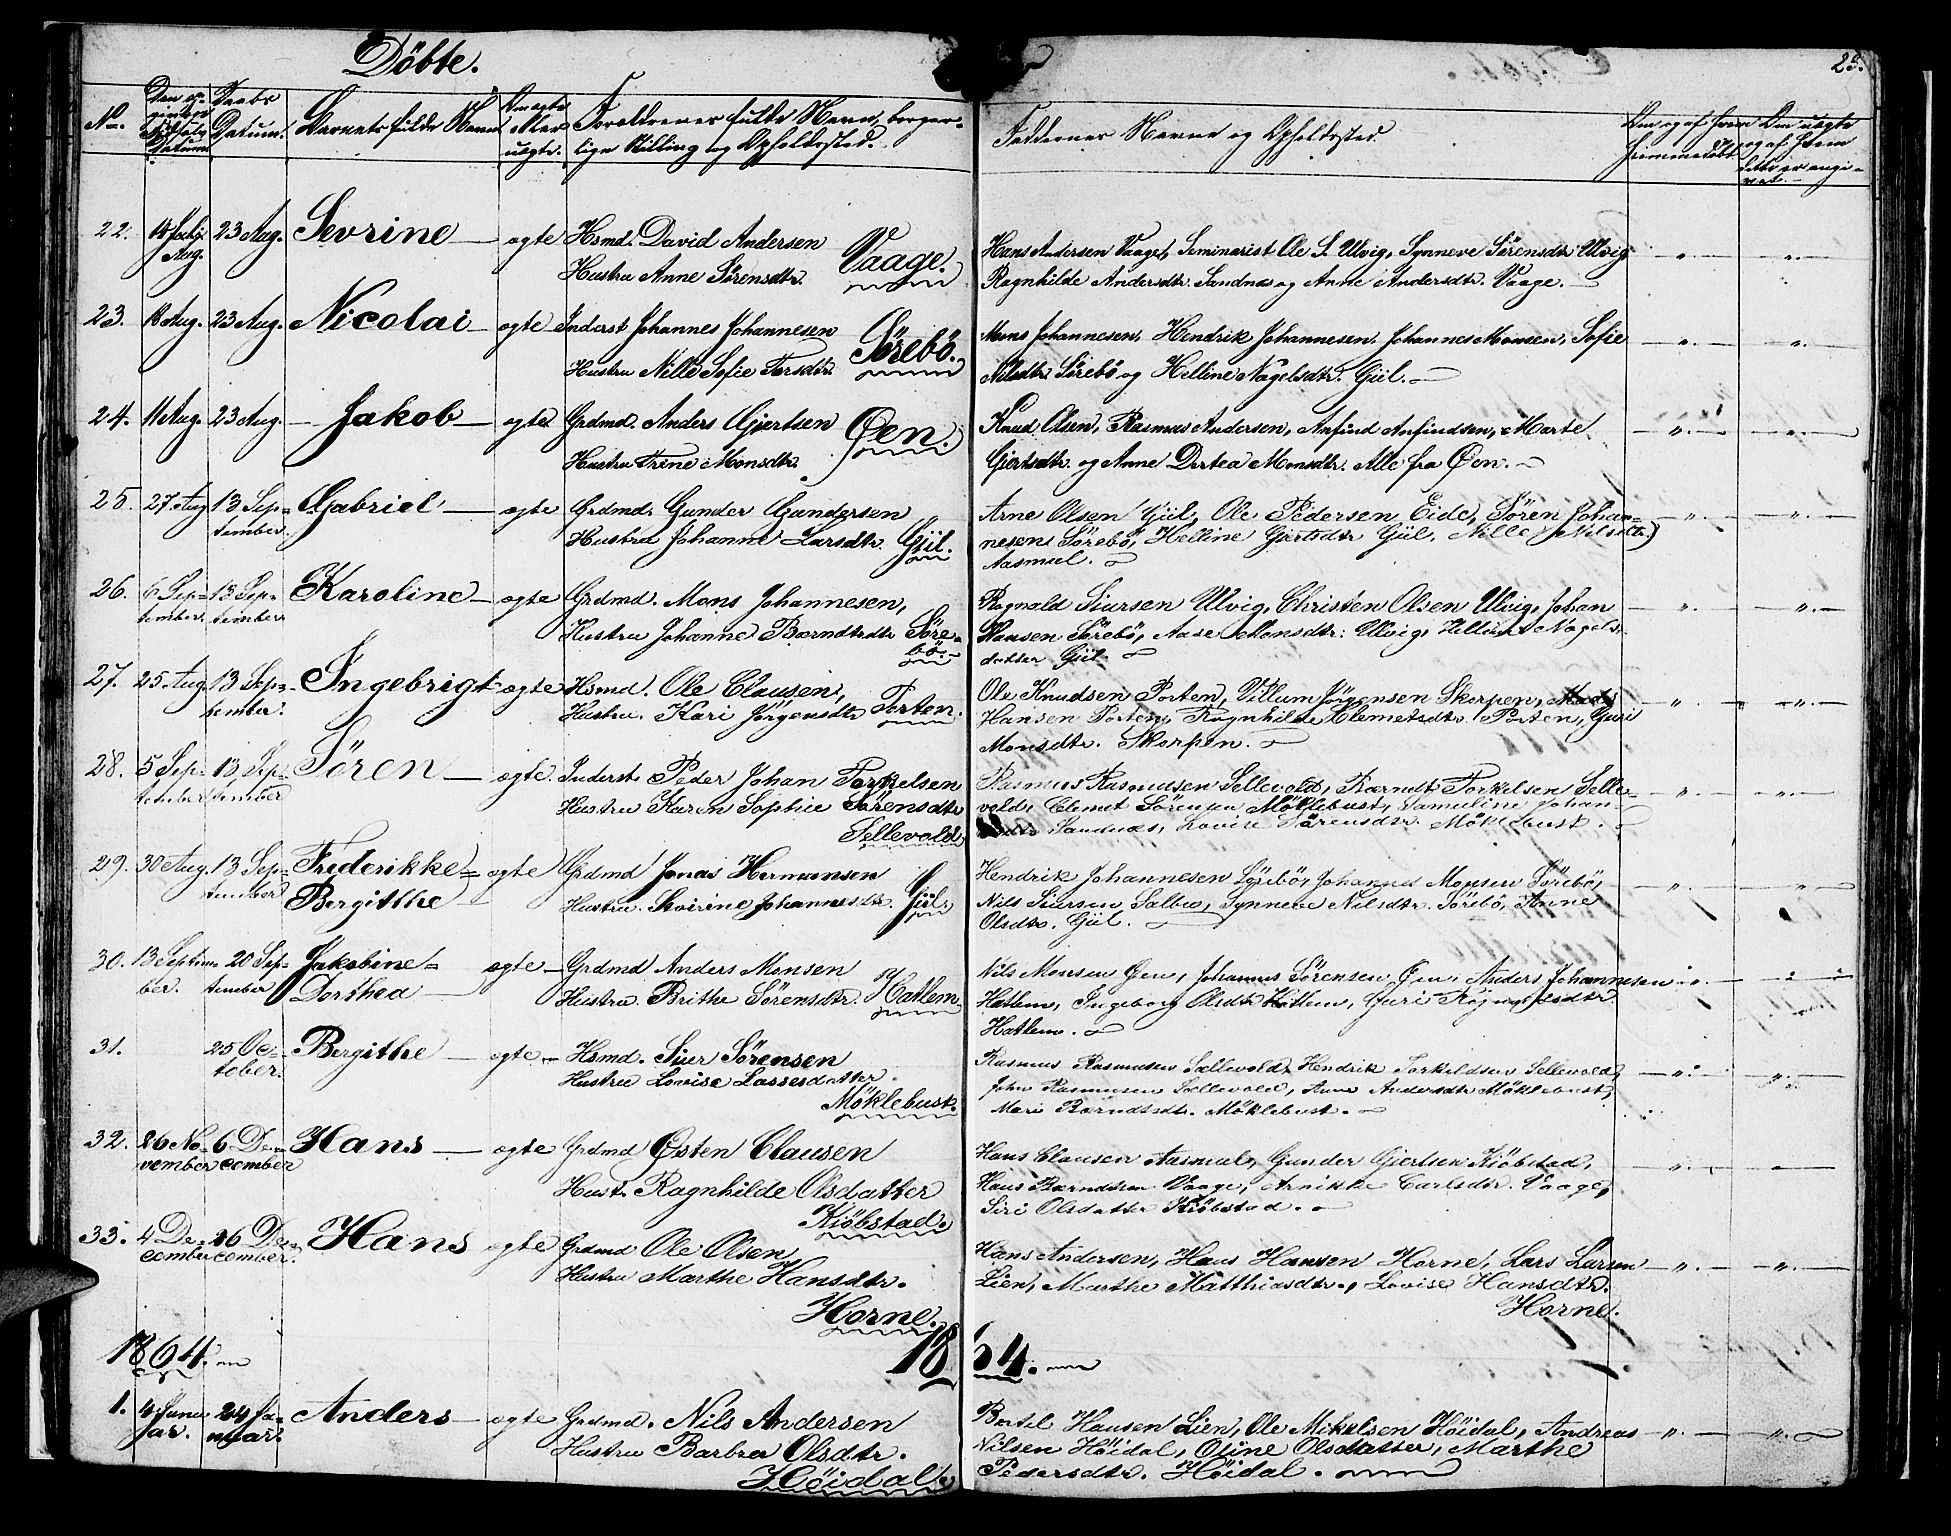 Döbte.
25.
No. Den opgivne Födsels Datum. Daabs Datum. Barnets fulde Navn Om ægte eller uægte. Forældrenes fulde Navn, borgerlige Stilling og Opholdssted. Faddernes Navne og Opholdssted.
22. Aug. 23 Aug. Sevrine — ægte Hsmd. David Andersen Vaage. Hans Andersen Vaage, Seminarist Ole S. Ulvig, Synneve Sörensdtr Ulvig
Hustru Anne Sörensdtr. Ragnhilde Andersdtr. Sandnæs og Anne Andersdtr. Vaage.
23. 18 Aug. 23 Aug. Nicolai — ægte Inderst Johannes Johannesen Sörebö. Mons Johannesen, Hendrik Johannesen, Johannes Monsen, Sofie
Hustru Nille Sofie Larsdtr. Nilsdtr. Sörebö og Helline Nagelsdtr. Gjil.
24. 11 Aug. 23 Aug. — Jakob — ægte Grdmd. Anders Gjertsen Øen. Knud Olsen, Rasmus Andersen, Anfind Anfindsen, Marte
Hustru Trine Monsdtr. Gjertsdtr. og Anne Dortea Monsdtr. Alle fra Øen.
25. 27 Aug 13 Sep= Gabriel — ægte Grdmd. Gunder Gundersen Arne Olsen Gjil, Ole Pedersen Eide, Sören Johan=
tember. Hustru Johanne Larsdtr. Gjil. nesen Sörebö, Helline Gjertsdtr Gjil, Nille Nilsdtr.
Aasmul.
26. 6 Sep= 13 Sep= Karoline — ægte Grdmd. Mons Johannesen, Ragnald Siursen Ulvig, Christen Olsen Ulvig, Johan
tember tember Hustru Johanne Bærndtsdtr Söre= Hansen Sörebö, Aase Monsdtr: Ulvig, Helline Nagels=
bö. datter Gjil.
27. 25 Aug. 13 Sep= Ingebrigt ægte Hsmd. Ole Clausen, Ole Knudsen Porten, Villum Jörgensen Skorpen, Mads
tember. Hustru. Kari Jörgensdtr Porten. Hansen Porten, Ragnhilde Clemetsdtr. Porten, Guri
Monsdtr. Skorpen.
28. 5 Sep= 13 Sep= Sören — ægte. Inderst. Peder Johan Torkelsen Rasmus Rasmussen Sellevold, Bærndt Torkelsen Selle=
tember tember Hustru Karen Sophie Sörensdtr vold, Clemet Sörensen Möklebust, Samuline Johan=
Sellevold. Sandnæs, Lovise Sörensdtr. Möklebust.
29. 30 Aug. 13 Sep= Frederikke= ægte Grdmd Jonas Hermansen Hendrik Johannesen Sörebö, Johannes Monsen Sörebö,
tember Bergitthe — Hustru. Sevirine Johannesdtr. Gjil. Nils Siursen Salbu, Synneve Nilsdtr. Sörebö, Anne
Olsdtr. Gjil.
30. 13 Septem= 20 Sep= Jakobine= ægte — Grdmd Anders Monsen Hatlem. Nils Monsen Øen, Johannes Sörensen Øen, Anders Johannesen
ber. tember Dorthea — Hustru. Brithe Sörensdtr. Hatlem, Ingeborg Olsdtr Hatlem, Guri
Hatlem.
31. 25 Oc= Bergithe — ægte — Hsmd. Siur Sörensen Rasmus Rasmusen Sellevold, Hendrik Torkildsen Sellevold,
tober. Hustru Lovise Lassesdatter John Rasmusen Sellevold, Anne Andersdtr Möklebust,
Möklebust. Mari Bærndtsdtr. Möklebust.
32. 26 No= 6 De= Hans — ægte Grdmd Østen Clausen Hans Clausen Aasmul, Gunder Gjertsen Kiöbstad,
vember cember Hust. Ragnhilde Olsdatter Hans Bærndtsen Vaage, Arnikke Carlsdtr. Vaage,
Kiöbstad. Siri Olsdatter Kiöbstad.
33. 4 De= 26 De= Hans ægte Grdmd Ole Olsen, Hans Andersen, Hans Hansen Horne, Lars Larsen
cember cember. Hustru Marthe Hansdtr. Lien, Marthe Matthiasdtr., Lovise Hansdtr.
Horne. Horne.
1864. 1864.
1. 4 Janu 24 Ja= Anders — ægte Grdmd. Nils Andersen Bertel Hansen Lien, Ole Mikelsen Höidal, Andreas
ar. nuar. Hustru Barbra Olsdtr. Nilsen Höidal, Oline Olsdatter, Marthe
Höidal. Pedersdtr. Höidal.